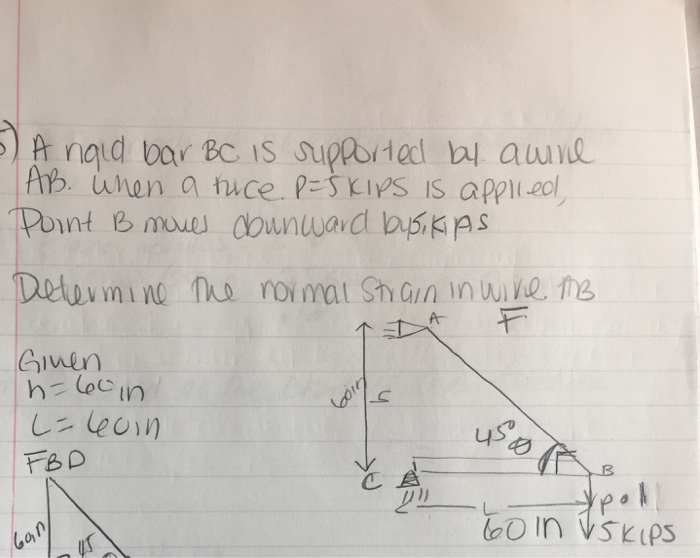 5) A rigid bar BC is supported by a wire
AB. when a force P=5kips is applied,
Point B moves downward by 5, kips
Determine the normal strain in wire AB
A F
Given
h=60in
60in
L=60in
45° θ
FBD
C B
L
60 in
5 kips
60in
45